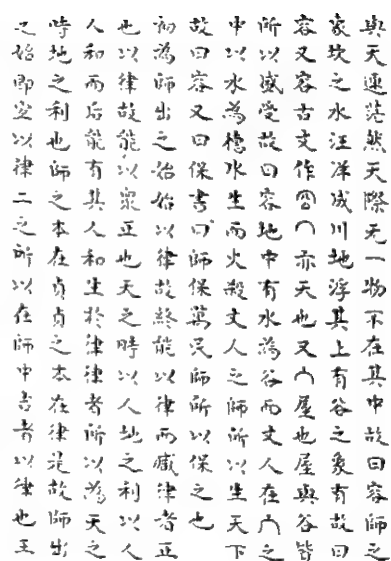 與天連茫然天際无一物不在其中故曰容師之
象坎之水汪洋成川地浮其上有谷之象有故曰
容又容古文作宀亦天也又宀屋也屋與谷皆
所以盛受故曰容地中有水為谷而丈人在宀之
中以水為德水生而火殺丈人之師所以生天下
故曰容又曰保書曰師保萬民師所以保之也
初為師出之始始以律故終能以律而臧律者正
也以律故能以眾正也天之時以人地之利以人
人和而后能有其人和生於律律者所以為天之
時地之利也師之本在貞貞之本在律是故師出
之始即宜以律二之所以在師中吉者以律也王